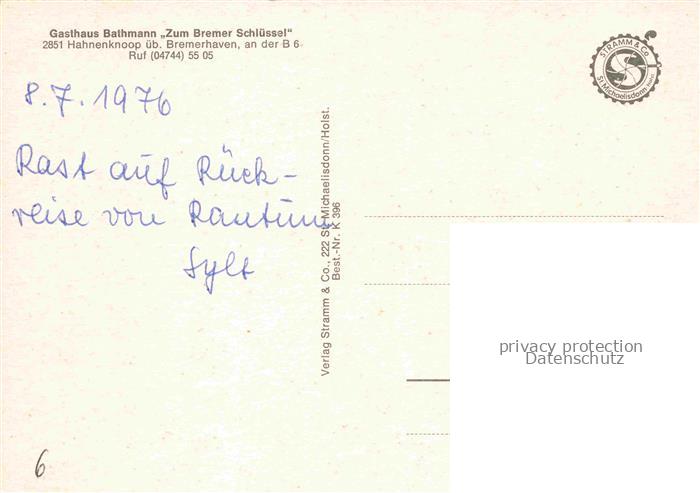 Gasthaus Bathmann „Zum Bremer Schlüssel"
2851 Hahnenknoop üb. Bremerhaven, an der B 6
Ruf (04744) 55 05
8.7.1976
Rast auf Rück-
reise von Rantum
Sylt
6
Verlag Stramm & Co., 222 St. Michaelisdonn/Holst.
Best.-Nr. K 396
STRAMM & Co
St. Michaelisdonn
privacy protection
Datenschutz